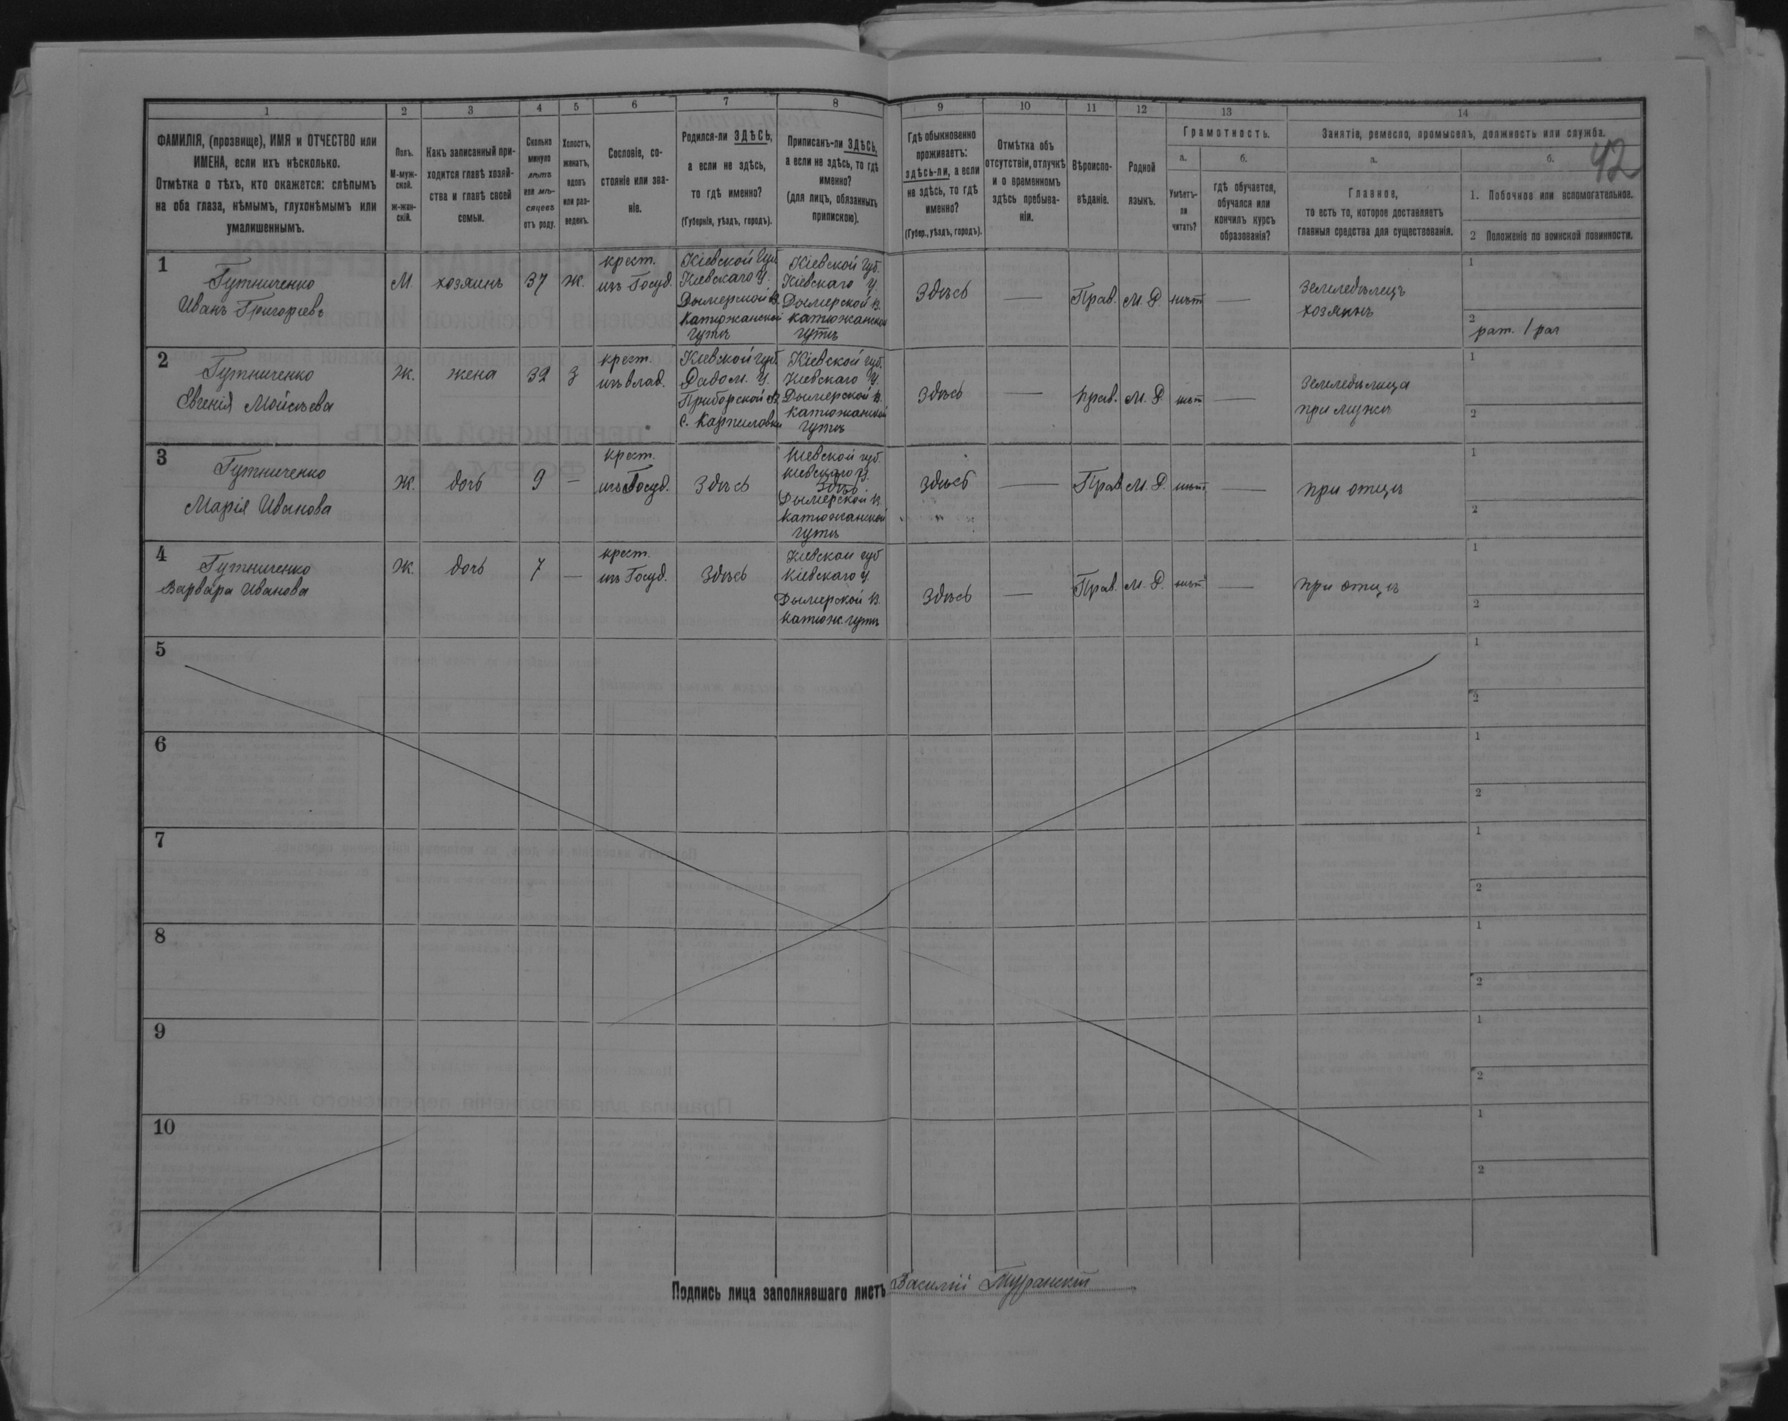 1 2 3 4 5 6 7 8 9 10 11 12 13 14
ФАМИЛІЯ, (прозвище), ИМЯ и ОТЧЕСТВО или
ИМЕНА, если ихъ нѣсколько.
Отмѣтка о тѣхъ, кто окажется: слѣпымъ
на оба глаза, нѣмымъ, глухонѣмымъ или
умалишеннымъ.
Полъ.
М-муж-
ской.
ж-жен-
скій.
Какъ записанный при-
ходится главѣ хозяй-
ства и главѣ своей
семьи.
Сколько
минуло
лѣтъ
или мѣ-
сяцевъ
отъ роду.
Холостъ,
женатъ,
вдовъ
или раз-
веденъ.
Сословіе, со-
стояніе или зва-
ніе.
Родился-ли ЗДѢСЬ,
а если не здѣсь,
то гдѣ именно?
(Губернія, уѣздъ, городъ).
Приписанъ-ли ЗДѢСЬ,
а если не здѣсь, то гдѣ
именно?
(для лицъ, обязанныхъ
припискою).
Гдѣ обыкновенно
проживаетъ:
здѣсь-ли, а если
не здѣсь, то гдѣ
именно?
(Губер., уѣздъ, городъ).
Отмѣтка объ
отсутствіи, отлучкѣ
и о временномъ
здѣсь пребыва-
ніи.
Вѣроиспо-
вѣданіе.
Родной
языкъ.
Грамотность.
а.
Умѣетъ-
ли
читать?
б.
гдѣ обучается,
обучался или
кончилъ курсъ
образованія?
Занятіе, ремесло, промыселъ, должность или служба.
42
а.
Главное,
то есть то, которое доставляетъ
главныя средства для существованія.
б.
1. Побочное или вспомогательное.
2 Положеніе по воинской повинности.
1
Гутниченко
Иванъ Григорьевъ
М.
хозяинъ
37
Ж.
крест.
изъ Госуд.
Кіевской Губ.
Кіевскаго У.
Дымерской В.
Катюжанской
гутъ
Кіевской Губ.
Кіевскаго У.
Дымерской В.
Катюжанской
гутъ
Здѣсь
—
Прав.
М. Р.
нѣт
—
Земледѣлецъ
хозяинъ
1
2
рат. 1 раз
2
Гутниченко
Евгенія Мойсѣева
Ж.
жена
32
З
крест.
изъ влад.
Кіевской Губ.
Радом. У.
Приборской В.
с. Карпиловки
Кіевской губ.
Кіевскаго У.
Дымерской В.
Катюжанской
гутъ
Здѣсь
—
прав.
М. Р.
нѣт
—
Земледѣлица
при мужѣ
1
2
3
Гутниченко
Марія Иванова
Ж.
дочь
9
—
крест.
изъ Госуд.
Здѣсь
Кіевской губ.
Кіевскаго У.
Здѣсь
Дымерской В.
Катюжанской
гутъ
Здѣсь
—
Прав.
М. Р.
нѣт
—
при отцѣ
1
2
4
Гутниченко
Варвара Иванова
Ж.
дочь
7
—
крест.
изъ Госуд.
Здѣсь
Кіевской губ
Кіевскаго У
Дымерской В.
Катюж. гутъ
Здѣсь
—
Прав.
М. Р.
нѣт
—
при отцѣ
1
2
5
1
2
6
1
2
7
1
2
8
1
2
9
1
2
10
1
2
Подпись лица заполнявшаго листъ Василій